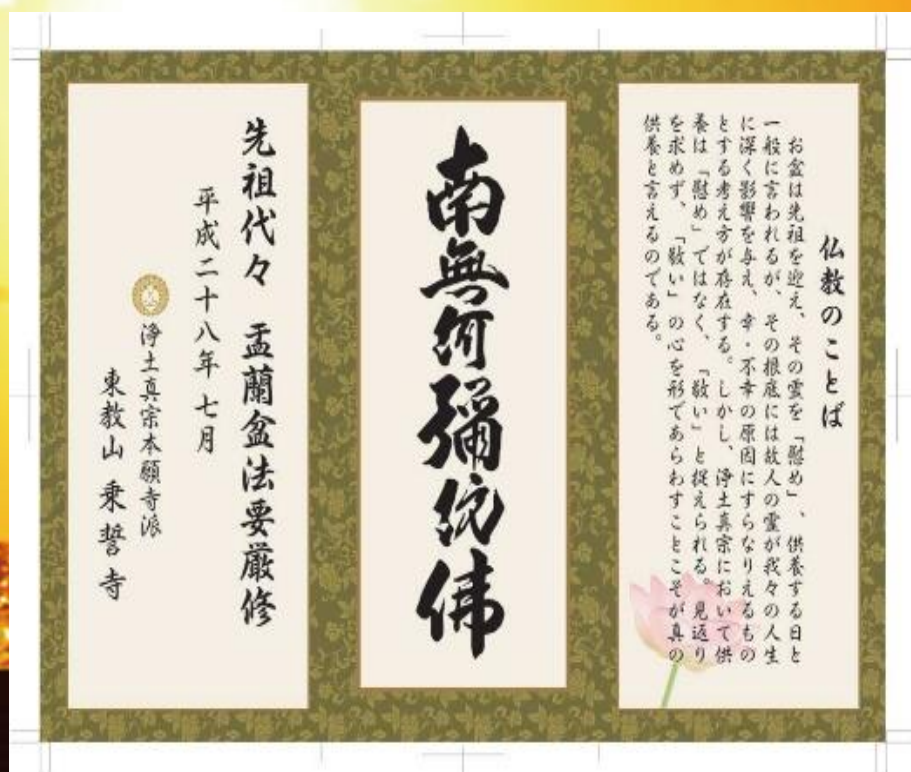 仏教のことば
お盆は先祖を迎え、その霊を「慰め」、供養する日と
一般に言われるが、その根底には故人の霊が我々の人生
に深く影響を与え、幸・不幸の原因にすらなりえるもの
とする考え方が存在する。しかし、浄土真宗において供
養は「慰め」ではなく、「敬い」と捉えられる。見返り
を求めず、「敬い」の心を形であらわすことこそが真の
供養と言えるのである。
南無阿彌陀佛
先祖代々 盂蘭盆法要厳修
平成二十八年七月
浄土真宗本願寺派
東教山 乗誓寺